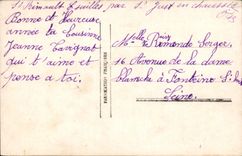 St Rimault Esuilles, par St Just en chaussée
Oise
Bonne et Heureuse
année ta Cousine
Jeanne Tavignot
qui t'aime et
pense a toi.
FABRICATION FRANÇAISE
Melle Raimonde Serger
16 Avenue de la dame
blanche à Fontenay s/ Bois
Seine